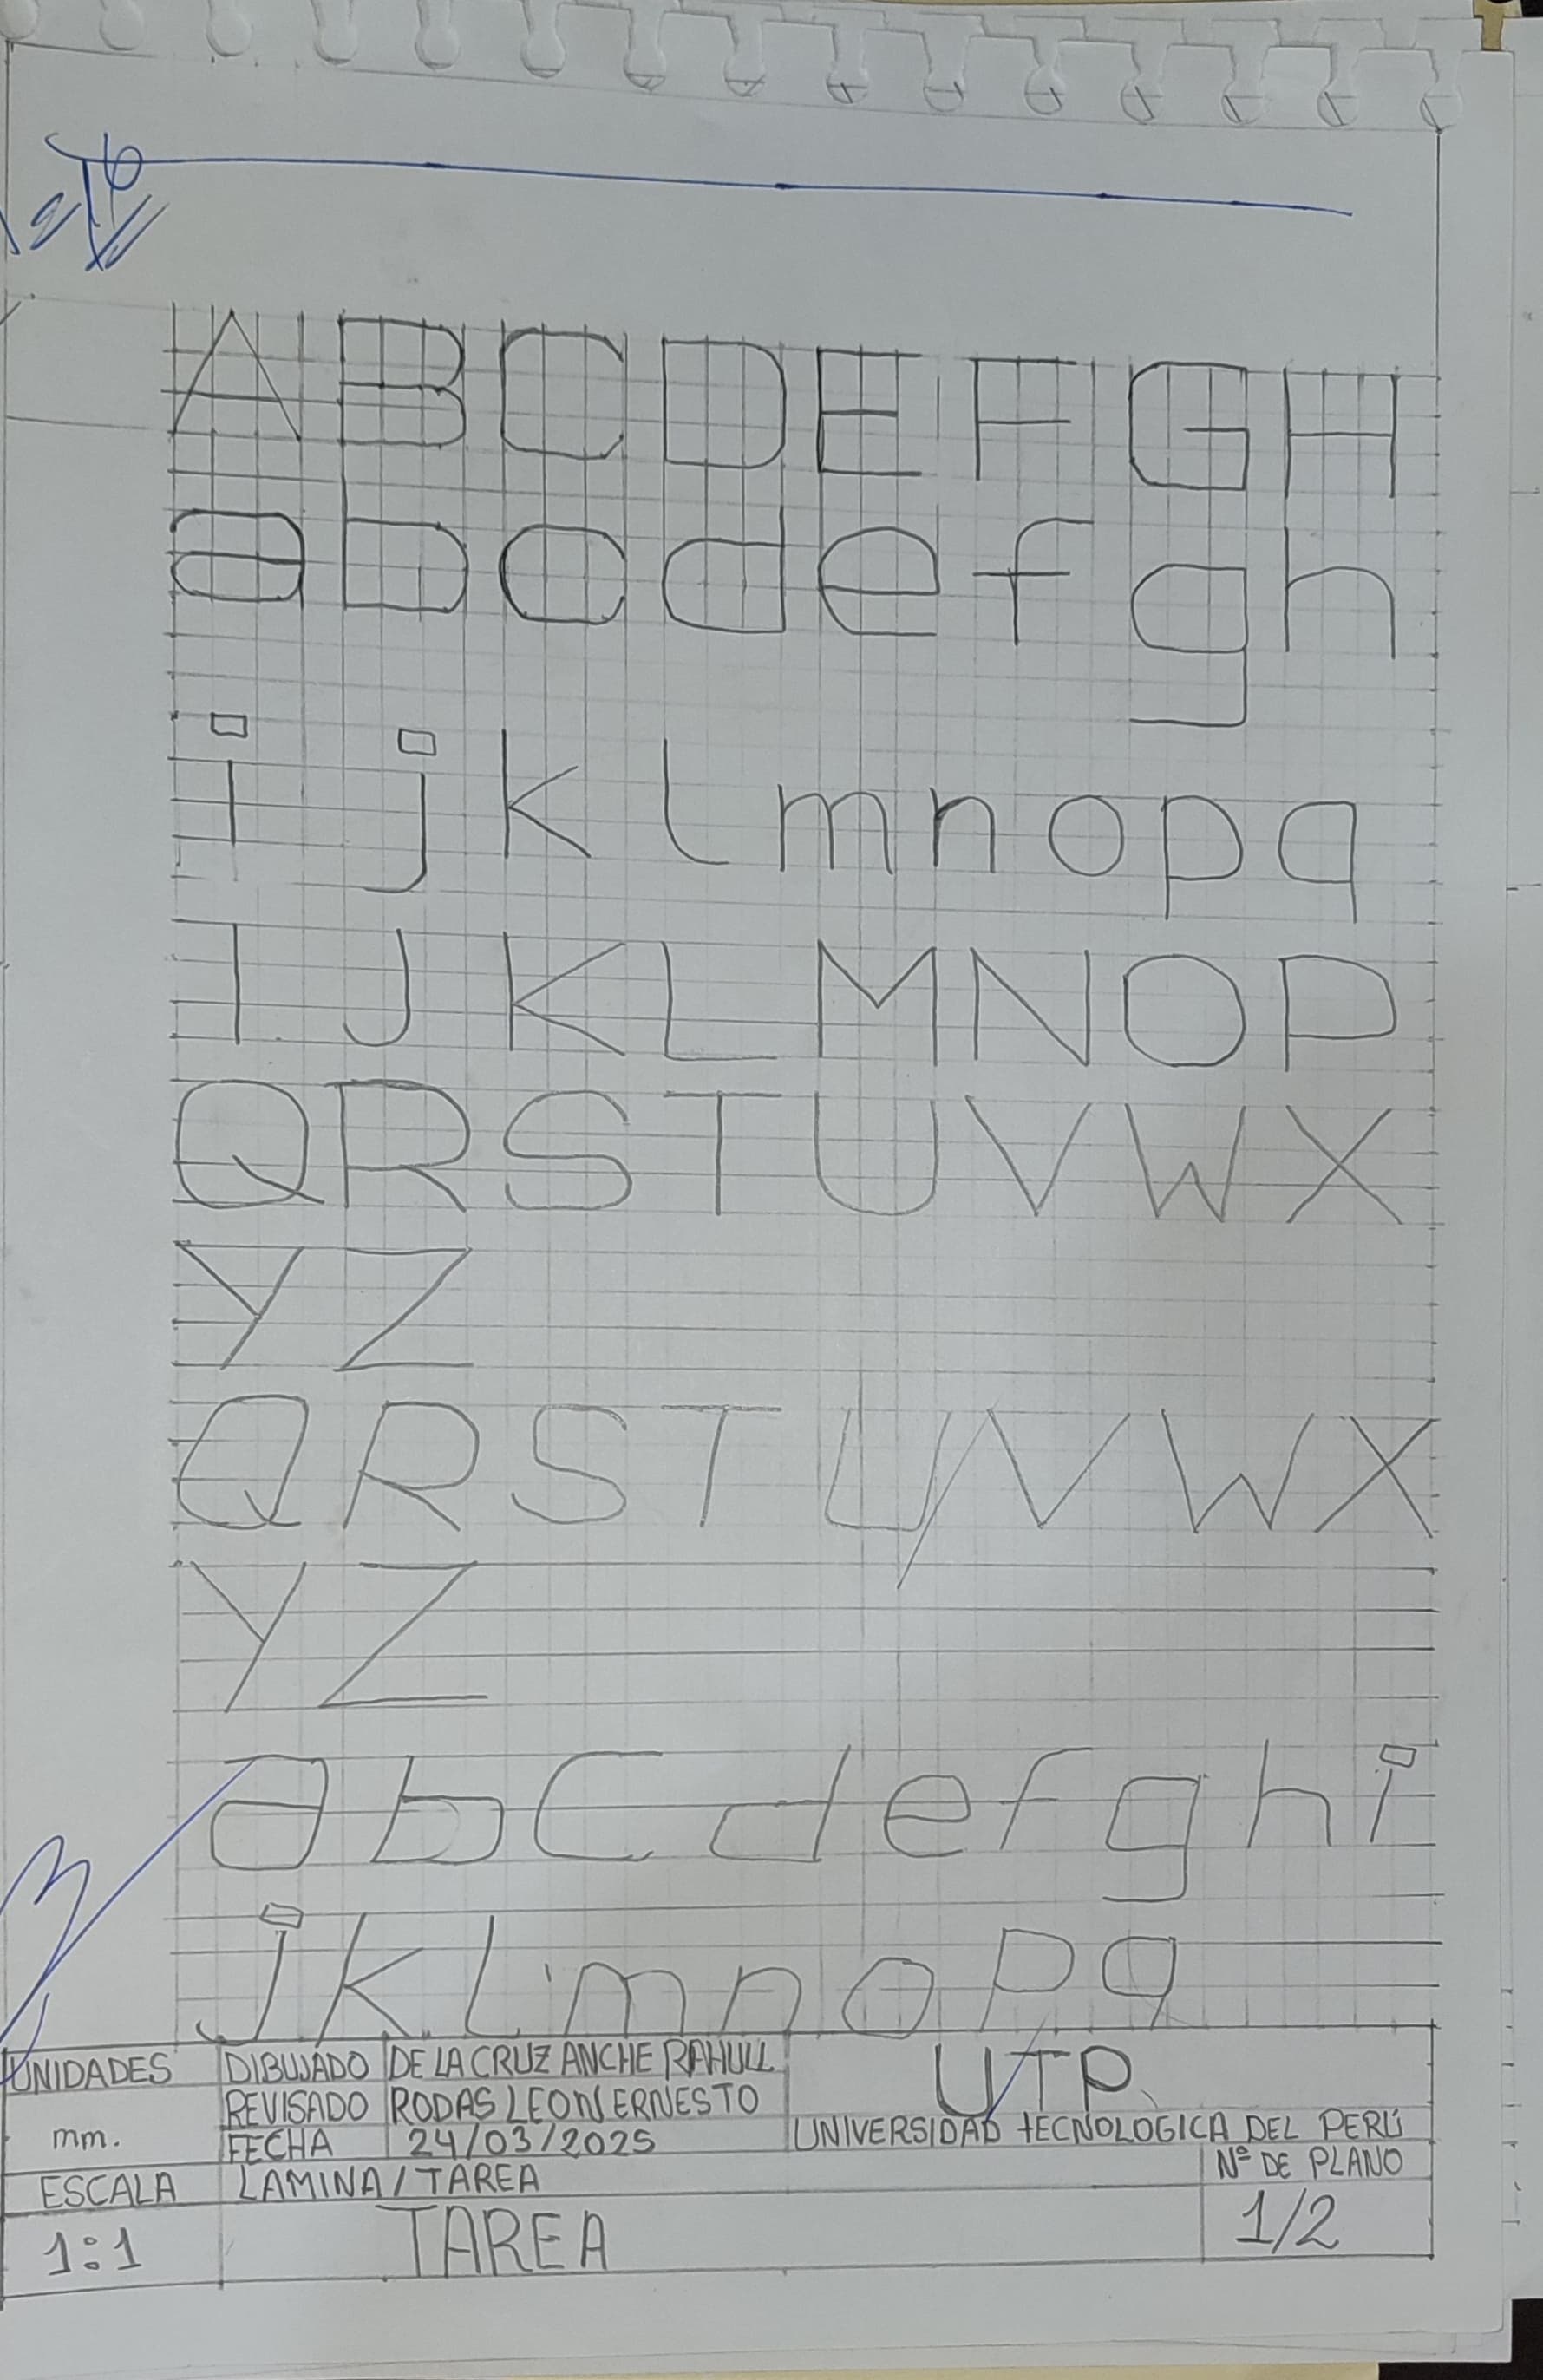 A B C D E F G H
a b c d e f g h
i j k l m n o p q
I J K L M N O P
Q R S T U V W X
Y Z
Q R S T U V W X
Y Z
a b c d e f g h i
j k l m n o p q
UNIDADES DIBUJADO DE LA CRUZ ANCHE RAHULL UTP
REVISADO RODAS LEON ERNESTO
mm. FECHA 24/03/2025 UNIVERSIDAD tECNOLOGICA DEL PERÚ
ESCALA LAMINA/TAREA Nº DE PLANO
1:1 TAREA 1/2